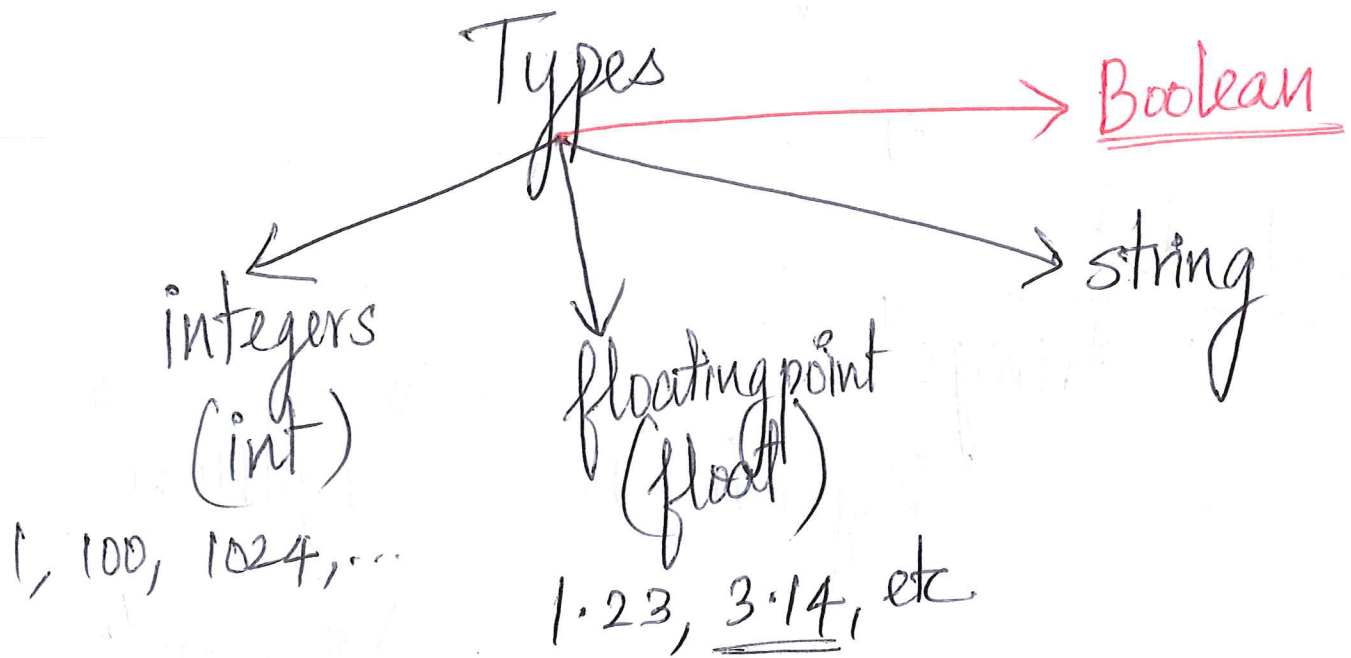 Types
Boolean
string
integers
(int)
1, 100, 1024, ...
floating point
(float)
1.23, 3.14, etc